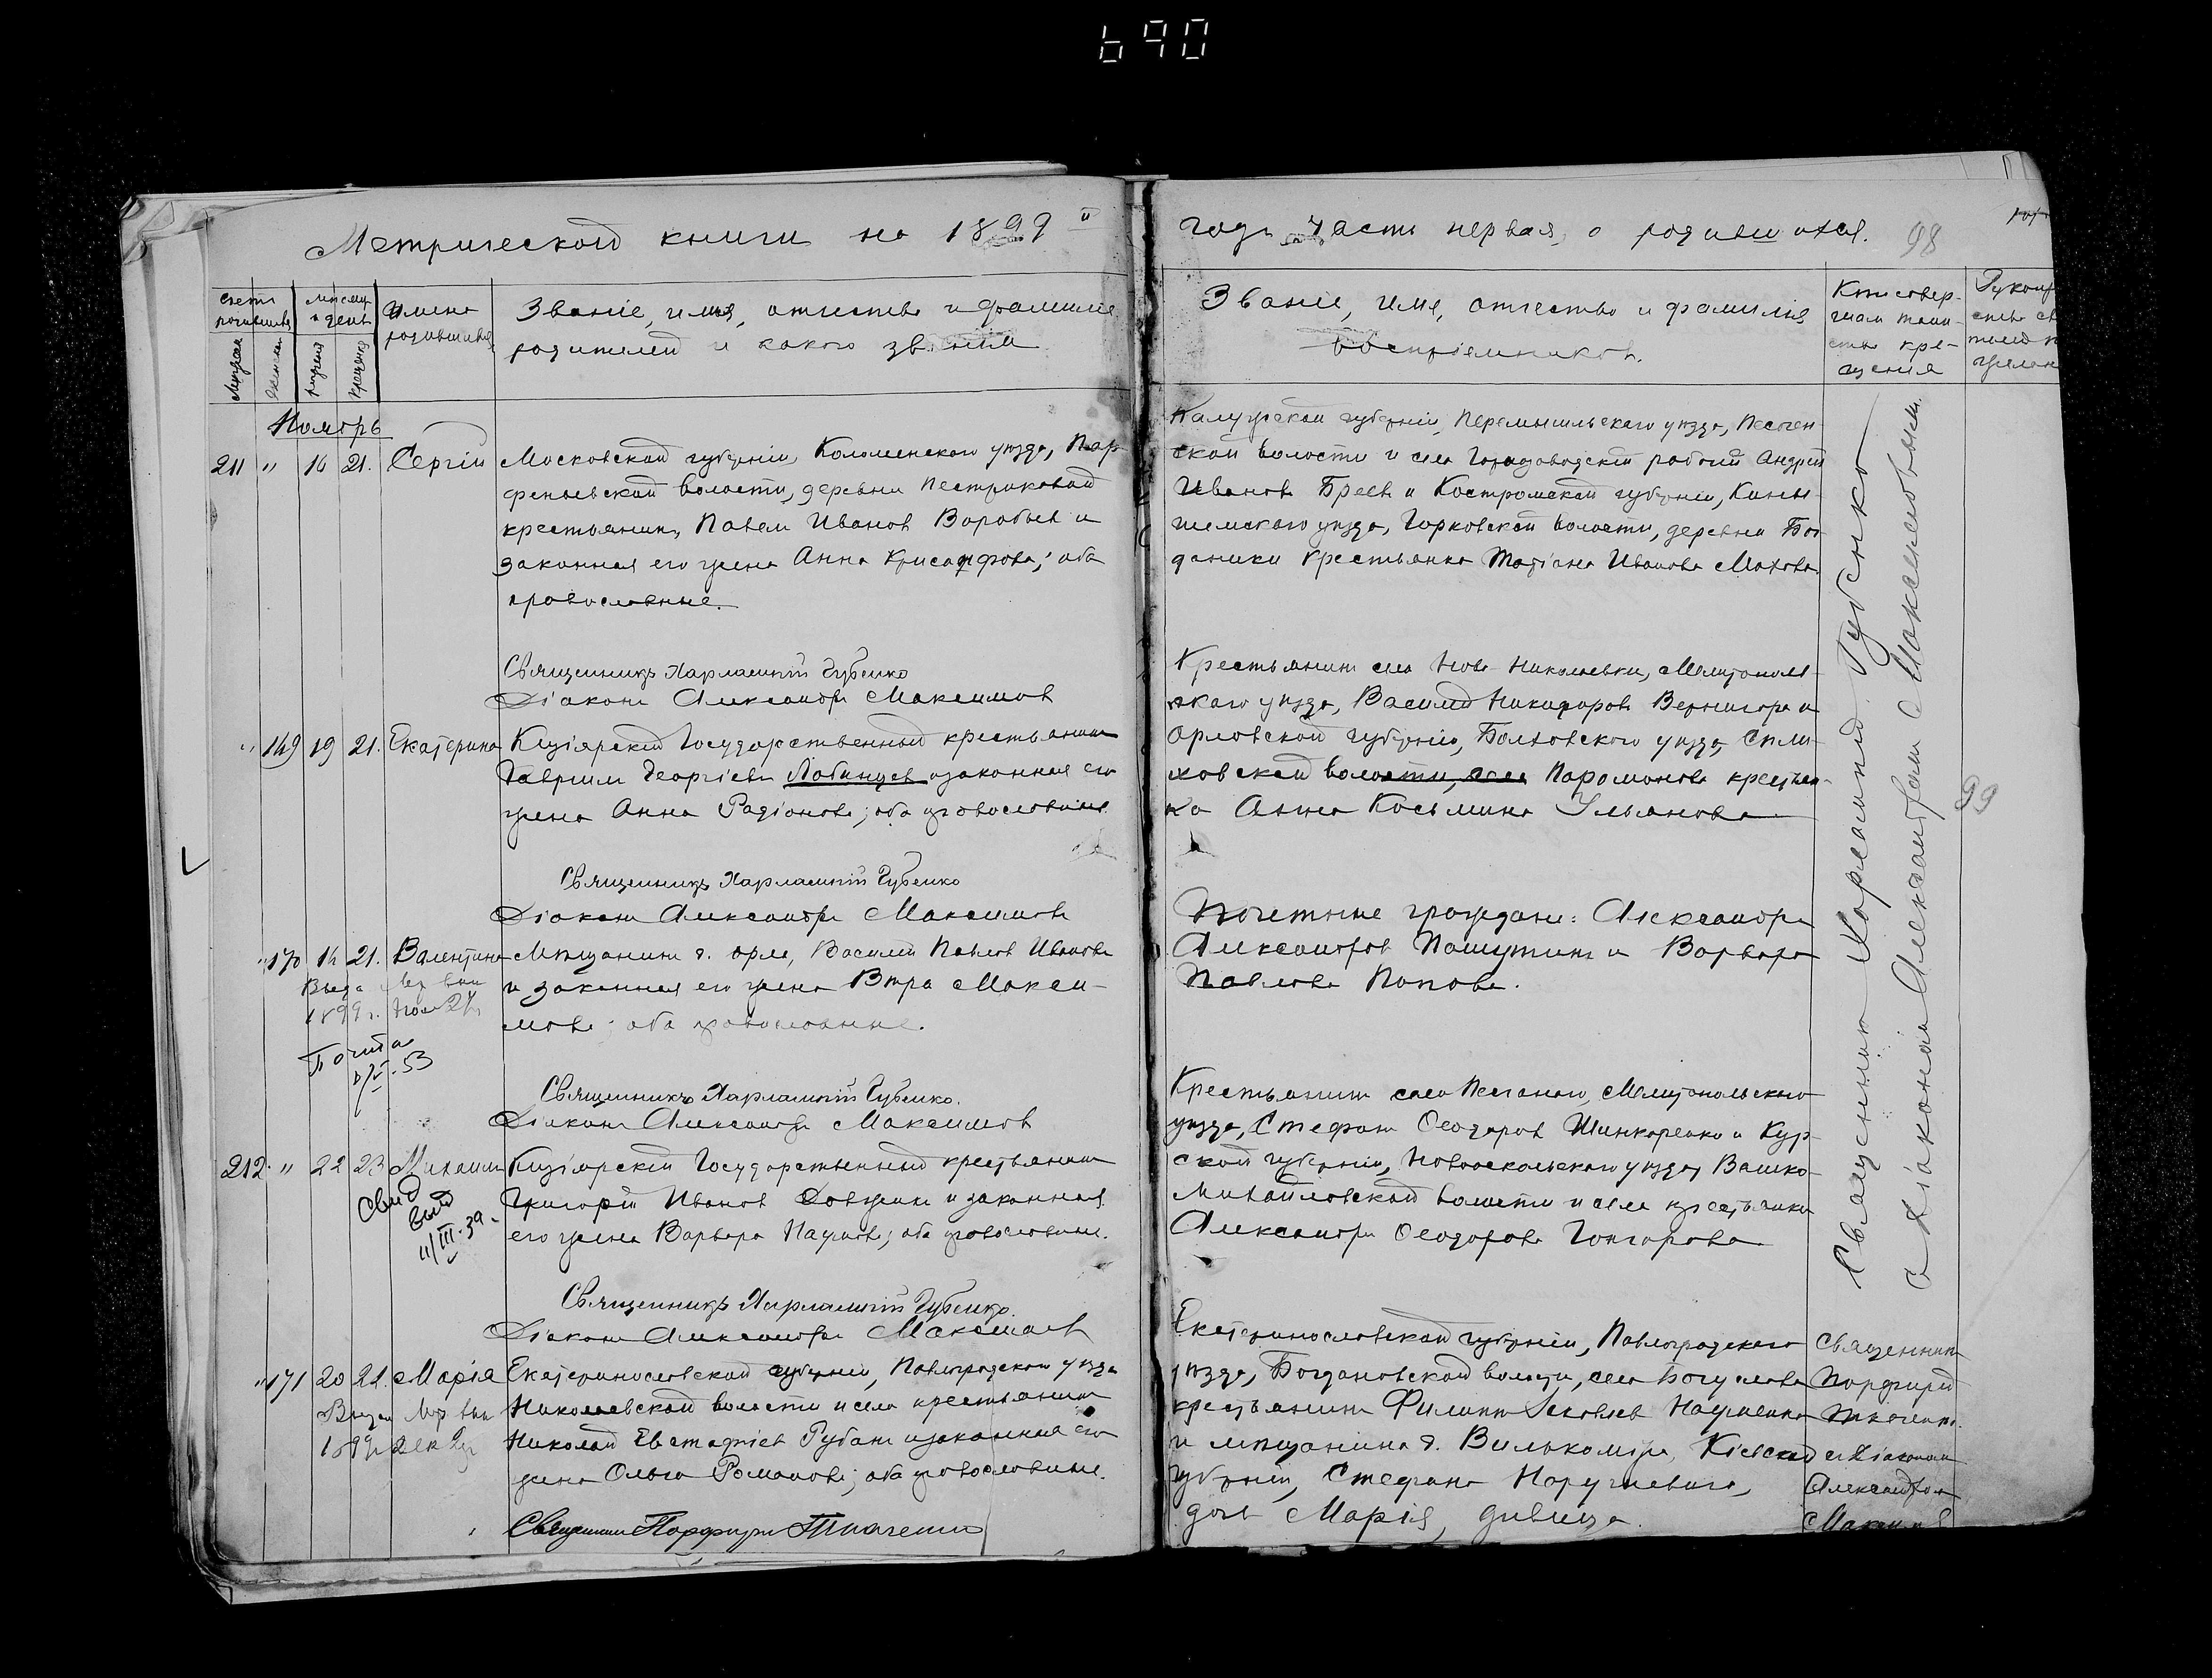 690
Метрической книги на 1899й
годъ, часть первая, о родившихся.
98
Счетъ родившихся
Мужеска
Женска
Месяцъ и день
рожденія
крещенія
Имена родившихся
Званіе, имя, отчество и фамилія
родителей и какого
Званіе, имя, отчество и фамилія
воспріемниковъ.
Кто совер-
шалъ таин-
ство кре-
щенія
Ноябрь
211 " 16 21. Сергій
Московской губерніи, Коломенского уѣзда, Пар-
феньевской волости, деревни Пестриковой
крестьянинъ Павелъ Ивановъ Воробьев и
законная его жена Анна Крисанфова; оба
православные.
Священникъ Харлампій Губенко
Діаконъ Александръ Максимовъ
Калужской губерніи, Перемышльскаго уѣзда, Песочен-
ской волости и села рабочій Андрей
Ивановъ и Костромской губерніи, Кинеш-
мскаго уѣзда, Горковской волости, деревни
крестьянка Татіана Иванова
" 149 19 21. Екатерина
Кизіярскій Государственный крестьянинъ
Гавріилъ Георгіевъ Лобинцев и законная его
жена Анна Радіонова; оба православные.
Священникъ Харлампій Губенко
Діаконъ Александръ Максимовъ
Крестьянинъ села Ново-Николаевки, Мелитополь-
скаго уѣзда, Василій Никифоровъ Вернигора и
Орловской губерніи, Болховского уѣзда,
волости, села Парамонова крестьян-
ка Анна Косьмина Ульянова
" 170 16 21. Валентина
1899 г.
53
Мѣщанинъ г. Орла, Василій Павловъ Ивановъ
и законная его жена Вѣра Макси-
мова; оба православные.
Священникъ Харлампій Губенко.
Діаконъ Александръ Максимовъ
Почетные граждане: Александръ
Александровъ Пашутинъ и Варвара
Павлова Попова.
212. " 22 23 Михаилъ
Свид
выд
11/III-39
Кизіярскій Государственный крестьянинъ
Григорій Ивановъ Довженко и законная
его жена Варвара Наумова; оба православные.
Священникъ Харлампій Губенко.
Діаконъ Александръ Максимовъ
Крестьянинъ села Песчаного, Мелитопольскаго
уѣзда, Стефанъ Феодоровъ Шинкаренко и Кур-
ской губерніи, Новооскольскаго уѣзда,
Михайловской волости и села крестьянка
Александра Феодорова Гончарова
Священникъ Харлампій Губенко
с Діакономъ Александромъ Максимовымъ.
99
" 171 20 21. Марія
Екатеринославской губерніи, Павлоградского уѣзда
Николаевской волости и села крестьянинъ
Николай Евстафіевъ Рубанъ и законная его
жена Ольга Романова; оба православные.
Священникъ Порфирій Ткаченко
Екатеринославской губерніи, Павлоградскаго
уѣзда, Богдановской волости, села Богуслава
крестьянинъ Филиппъ Яковлевъ Науменко
и мѣщанина г. Вилькоміра, Кіевской
губерніи, Стефана
дочь Марія, дѣвица.
Священникъ
Порфирій
Ткаченко
с Діакономъ
Александромъ